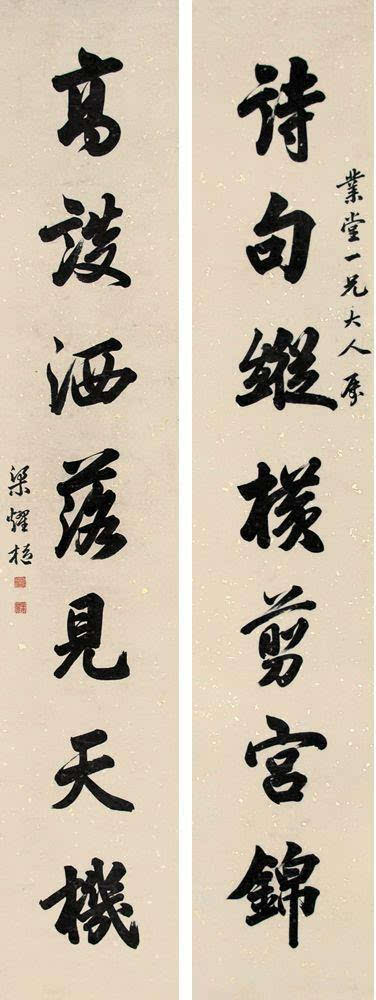 業堂一兄大人屬
詩句縱橫剪宮錦
高談洒落見天機
梁燿樞